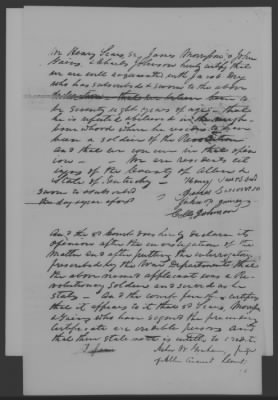 We Henry Sears Sr, James Morrison & John
& Charles Johnson hereby certify that
we are well acquainted with Jacob
who has subscribed & sworn to the above
declaration that we believe him to
be seventy eight years of age that
he is reputed & believed in the neigh-
bourhood where he resides to have
been a soldier of the Revolution
And that we concur in that opin
ion We are resident citi
zens of the County of Allen &
State of Kentucky Henry
Sworn to & subscribed
the day & year afores'd John
C Johnson
And the s'd Court does hereby declare its
opinion after the investigation of the
matter and after putting the interrogatory
prescribed by the War Department that
the above named applicant was a Re-
volutionary Soldier and served as he
states And the court further certifies
that it appears to it that s'd Sears, Morrison
& who has signed the preceding
certificate are credible persons and
that their statement is entitled to credit.
John W Judge
of Allen Circuit Court